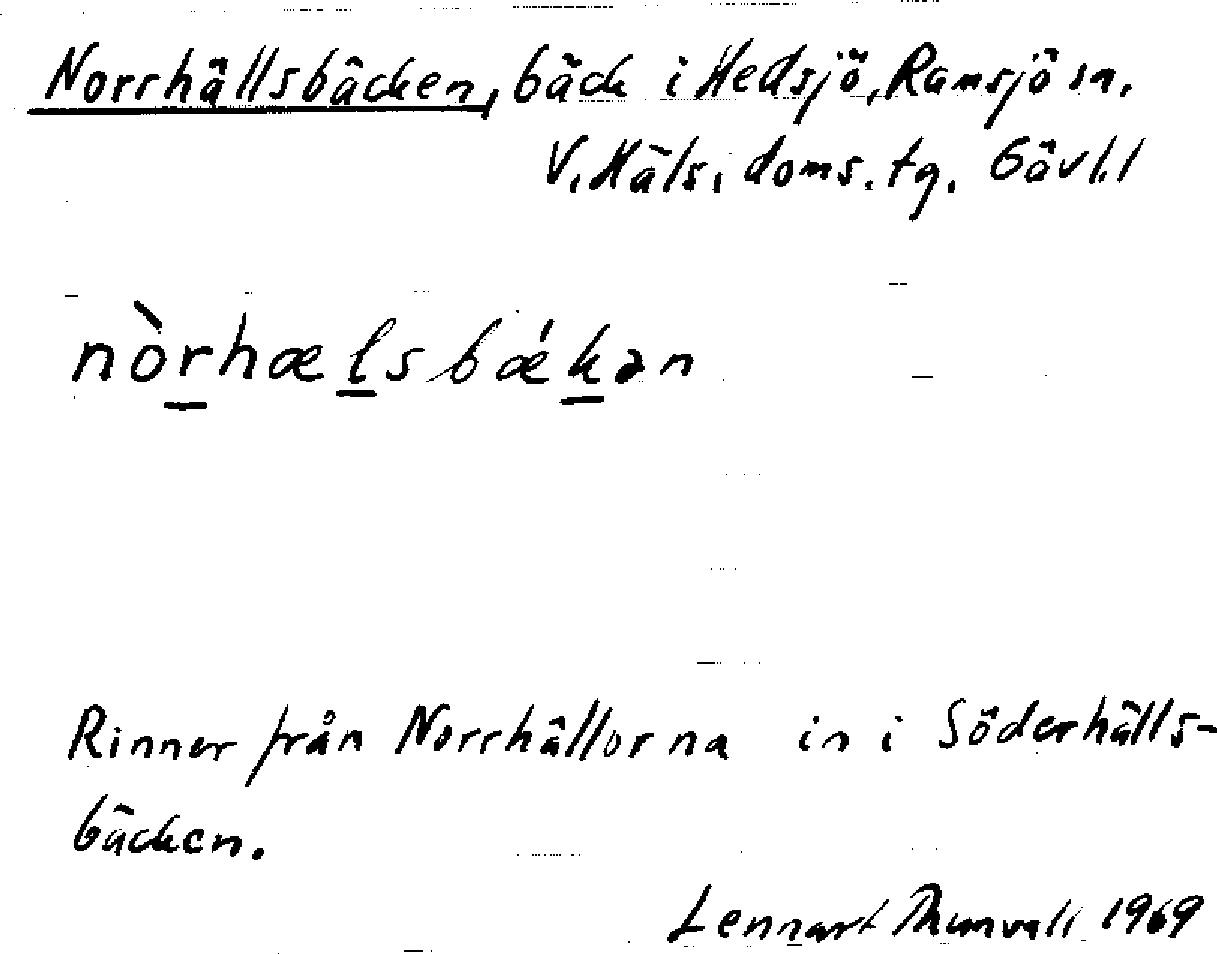 Norrhällsbäcken, bäck i Hedsjö, Ramsjö sn.
V. Häls. doms. tg. Gävl. l
nòrhælsbǽkən
Rinner från Norrhällorna in i Söderhälls-
bäcken.
Lennart Thunvall 1969